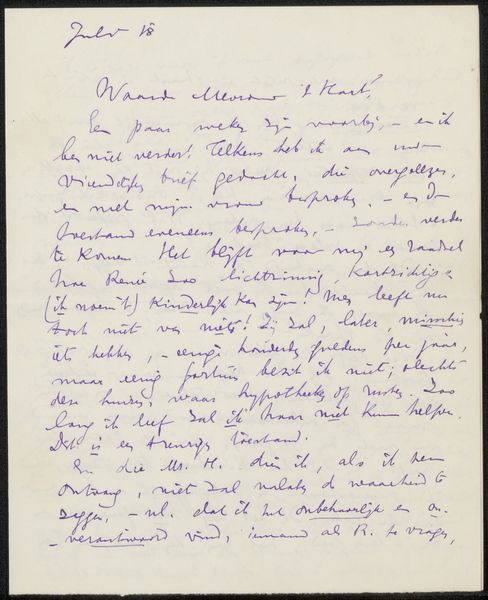 July 18
Waarde Mevrouw 't Hart,
Een paar weken zijn voorbij, – en ik
ben niet verder! Telkens heb ik aan uw
vriendelijke brief gedacht, die overgelezen,
en met mijn vrouw besproken, – en de
toestand eveneens besproken, – zonder verder
te komen. Het blijft voor mij een raadsel
hoe Renée zoo lichtzinnig, kortzichtig en
(ik noem 't) kinderlijk kan zijn! Men leeft nu
toch niet van niets! Zij zal, later, misschien
iets hebben, – eenige honderden guldens per jaar,
maar eenig fortuin bezit ik niet; slechts
deze huizen, waar hypotheeken op rusten. Zoo
lang ik leef zal ik haar niet kunnen helpen.
Dat is een treurige toestand.
En die Mr. H. dien ik, als ik hem
ontvang, niet zal nalaten de waarheid te
zeggen, – nl. dat ik het onbehoorlijk en on-
-verantwoord vind, iemand als R. te vragen,